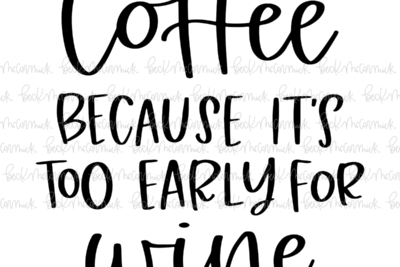 Coffee
BECAUSE IT'S
TOO EARLY FOR
wine